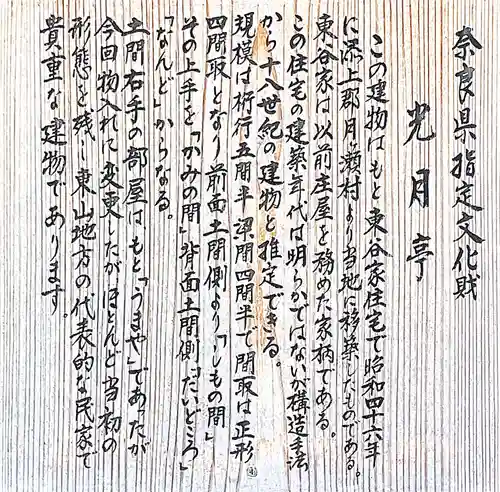 奈良県指定文化財
光月亭
この建物はもと東谷家住宅で昭和四十六年
に添上郡月ヶ瀬村より当地に移築したものである。
東谷家は以前庄屋を務めた家柄である。
この住宅の建築年代は明らかではないが構造手法
から十八世紀の建物と推定できる。
規模は桁行五間半梁間四間半で間取は正形
四間取となり前面土間側より「しもの間」
その上手を「かみの間」背面土間側「だいどころ」
「なんど」からなる。
土間右手の部屋は、もと「うまや」であったが
今回物入れに変更したがほとんど当初の
形態を残し東山地方の代表的な民家で
貴重な建物であります。